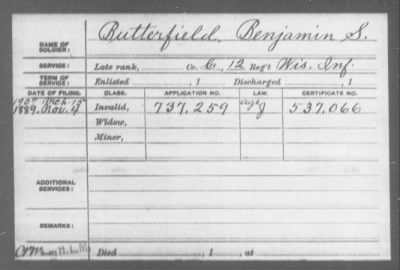 NAME OF SOLDIER: Butterfield, Benjamin S.
SERVICE: Late rank, Co. C, 12 Reg't Wis. Inf.
TERM OF SERVICE: Enlisted , 1 Discharged , 1
DATE OF FILING. CLASS. APPLICATION NO. LAW. CERTIFICATE NO.
1907 Mch. 15 age
1889. Nov. 4 Invalid, 737.259 J 537.066
Widow,
Minor,
ADDITIONAL SERVICES:
REMARKS:
Died , 1 , at